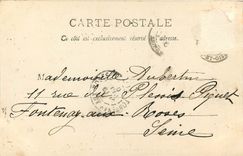 CARTE POSTALE
Ce côté est exclusivement réservé à l'adresse.
Mademoiselle Aubertin
11 rue du Plessis Piquet
Fontenay aux Roses
Seine